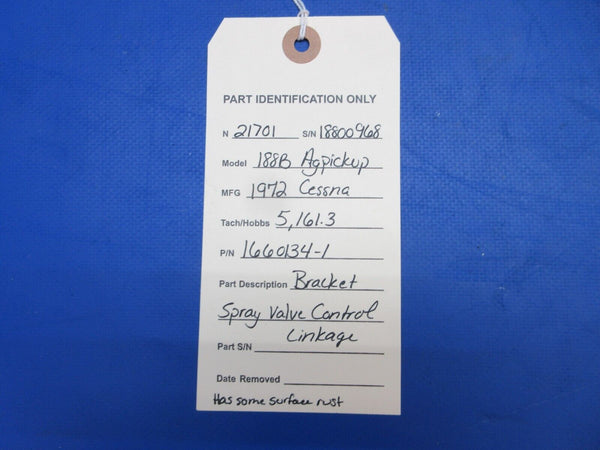 PART IDENTIFICATION ONLY
N 21701 S/N 18800968
Model 188B Agpickup
MFG 1972 Cessna
Tach/Hobbs 5,161.3
P/N 1660134-1
Part Description Bracket
Spray Valve Control
Linkage
Part S/N
Date Removed
Has some surface rust